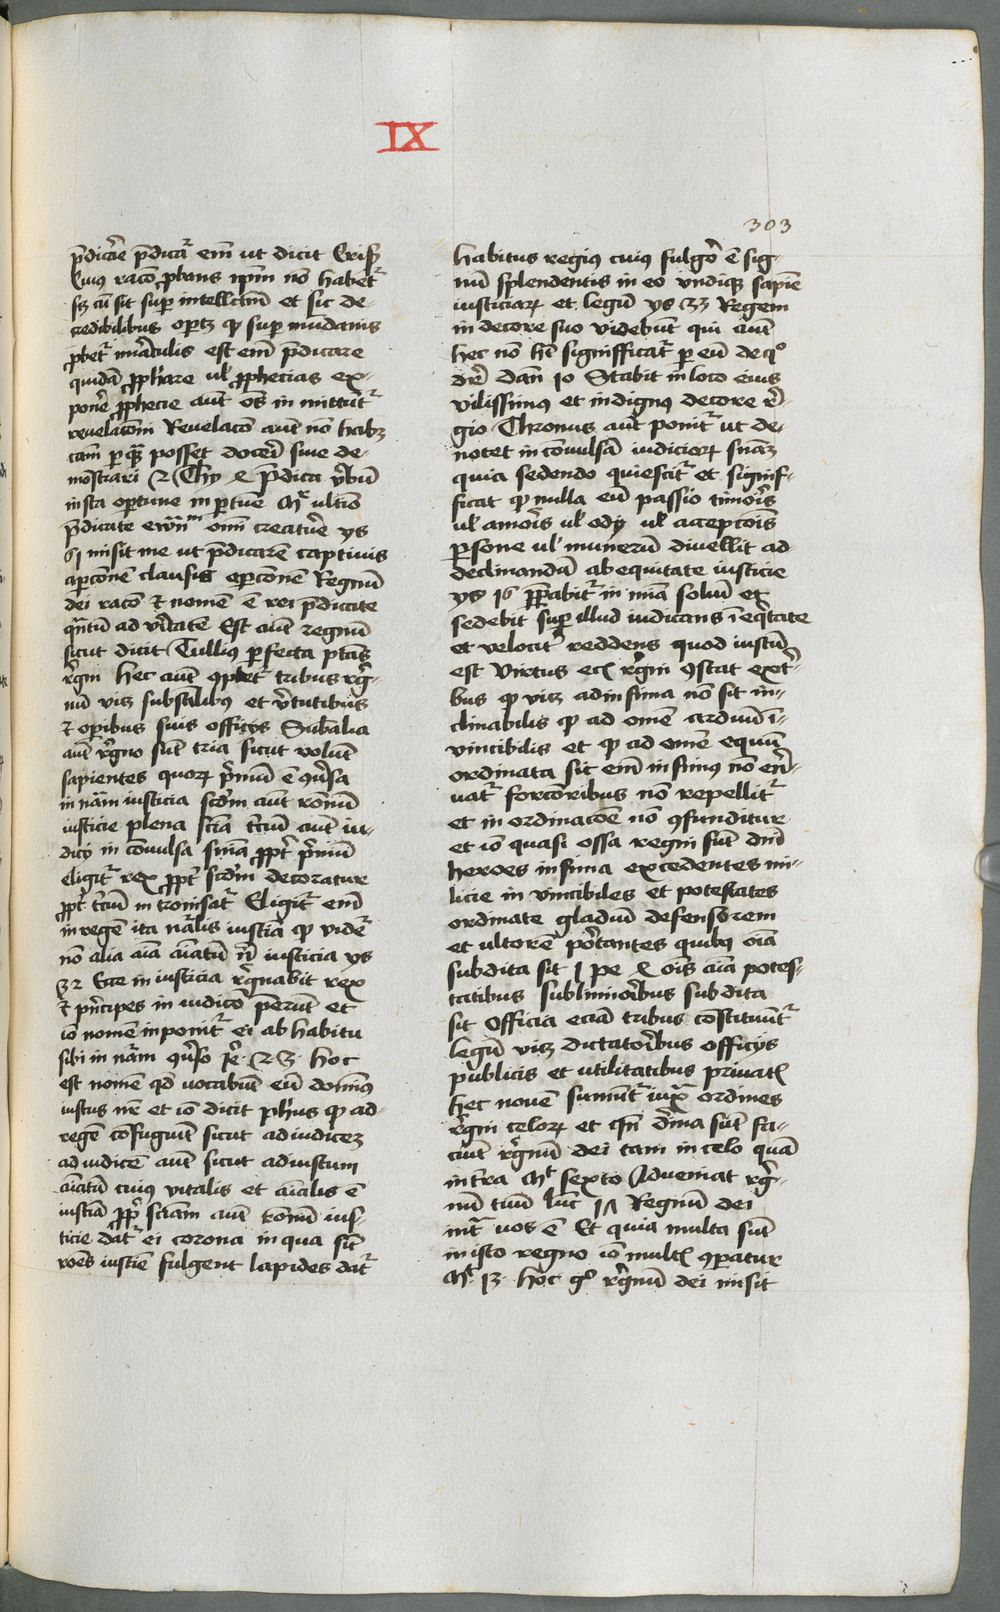 IX
303
p̄dicãe p̄dicat̃ em̃ ut dicit Crisꝫ
Cuius racõ ꝓbans nꝑm nõ habet̃
sꝫ cũ sit suꝑ intellctũ et sic de-
credibilibus oportꝫ ꝙ suꝑ mũdanis
ꝓbet̃ mĩaculis est em̃ p̄dicare
quidã ꝓph̃are ul̃ ꝓphecias ex-
ponẽ ꝓphecie aut̃ oẽs in mittũt̃
revelacõni Revelacõ aut̃ nõ habꝫ
cam̃ ꝑ quã posset doceri siue de-
mõstrari 2 Thy 4 p̄dica v̄bũ
insta oportune in portuẽ Mr̃ ultiõ
p̄dicate ewãm om̃i creatur̃e ys
61 misit me ut p̄dicarẽ captiuis
aꝑcõnem clausis aꝑcõnem Regnũ
dei racõ et nomẽ ẽ rei p̄dicate
qñtũ ad v̄itatẽ Est aut̃ regnũ
sicut dicit Tullius ꝑfecta ptãs
rẽgni hec aut̃ ꝯplet̃ tribus rẽg-
nũ viꝫ substãlibus et v̄tutibus
et oꝑibus suis officijs Subãlia
aut̃ rẽgno sũt tria sicut volũt
sapientes quoꝝ p̄mũ ẽ ꝯũsa
in nãm iusticia scd̃m aut̃ rõniũ
iusticie plena sciã tc̃iũ aut̃ iu-
dicij in cõvulsa sniã ꝓpt̃ p̄miũ
eligit̃ rex ꝓpt̃ scd̃m decoratur
ꝓpt̃ tc̃iũ in tronisat̃ Eligit̃ em̃
in regẽ ita nãlis iustiã ꝙ videt̃
nõ alia aĩa aĩatũ nĩ iusticia ys
32 Ecce in iusticia rẽgnabit rex
et p̃ncipes in iudicõ p̄erũt et
iõ nomen inponit̃ ei ab habitu
sibi in nãm ꝯũso Ie 23 hoc
est nomen qd̃ vocabũt eũ domin̄s
iustus nr̃ et iõ dicit ph̃us ꝙ ad-
regẽ cõfugiũt sicut ad iudicez
ad iudicẽ aut̃ sicut ad iustum
aĩatũ cuius vitalis et aĩalis ẽ
iustiã ꝓpt̃ sciãm aut̃ rõniũ ius-
ticie dat̃ ei corona in qua sũt
rões iustiẽ fulgent lapides dat̃
habitus regius cuius fulgor ẽ sig-
nũ splendentis in eo undiqꝫ sapiẽ
iusticiaꝝ et legũ ys 33 Regem
in decore suo videbũt qui aut̃
hec nõ hꝫ signifficat̃ ꝑ eũ de qõ
dr̃ dañ 10 Stabit in loco eius
vilissimus et indignus decore re-
gio Thronus aut̃ ponit̃ ut de-
notet in cõvulsã iudicioꝝ snĩaꝫ
quia sedendo quiescit̃ et signif-
ficat ꝙ nulla eũ passio timoris
ul̃ amoris ul̃ odij ul̃ accepcõis
ꝑsone ul̃ munerũ divellit ad
declinandũ ab equitate iusticie
ys 16 p̄parabit̃ in mĩa soliũ ex
sedebit suꝑ illud iudicans ĩ eq̃tate
et velocit̃ reddens quod iustũ
est Virtus eciã rẽgni ꝯstat ex t̃-
bus ꝙ viꝫ ad infima nõ sit in-
clinabilis ꝙ ad omẽ arduũ ĩ-
vincibilis et ꝙ ad omẽ equũ
ordinata sit em̃ infimus nõ ene-
vat̃ forcõribus nõ repellit̃
et in ordinacõe nõ ꝯfunditur
et iõ quasi ossa regni sũt dñi
heroes infima excedentes mi-
licie in vincibiles et potestates
ordinate gladiũ defensorem
et ultorẽ portantes quibus oĩa
subdita sit 1 pe 4 oĩs aĩa potes-
tatibus sublimioribus subdita
sit Officia eciã tribus cõstituũt̃
legũ viꝫ dictatoribus officijs
publicis et utilitatibus privatꝭ
hec novem sumũt̃ iuxͣ ordines
rẽgni celoꝝ et qñ dĩna sũt fa-
ciũt rẽgnũ dei tam in celo quã
in tr̃a Mt̃ sexto Adveniat rẽg-
nũ tuũ Luc̃ 17 Regnũ dei
int̃ uos ẽ Et quia multa sũt
in isto regno iõ multꝭ ꝯparatur
Mt̃ 13 hoc gͦ rẽgnũ dei misit